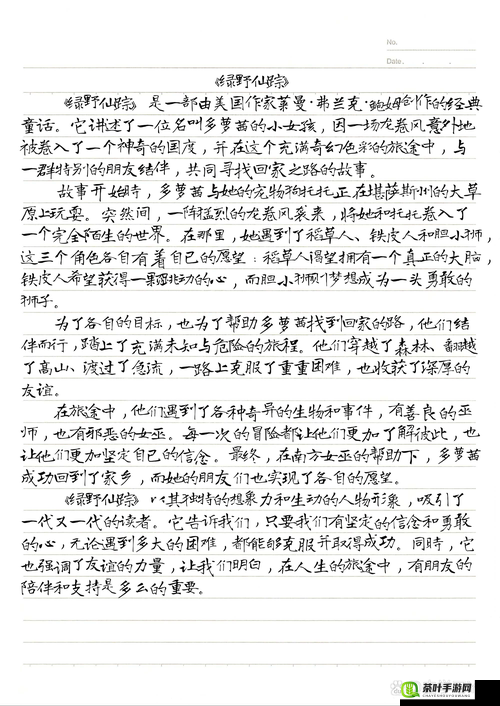 No.
Date
《绿野仙踪》
《绿野仙踪》是一部由美国作家莱曼·弗兰克·鲍姆创作的经典
童话。它讲述了一位名叫多萝茜的小女孩,因一场龙卷风意外地
被卷入了一个神奇的国度,并在这个充满奇幻色彩的旅途中,与
一群特别的朋友结伴,共同寻找回家之路的故事。
故事开始时,多萝茜与她的宠物狗托托正在堪萨斯州的大草
原上玩耍。突然间,一阵猛烈的龙卷风袭来,将她和托托卷入了
一个完全陌生的世界。在那里,她遇到了稻草人、铁皮人和胆小狮,
这三个角色各自有着自己的愿望:稻草人渴望拥有一个真正的大脑,
铁皮人希望获得一颗跳动的心,而胆小狮则梦想成为一头勇敢的
狮子。
为了各自的目标,也为了帮助多萝茜找到回家的路,他们结
伴而行,踏上了充满未知与危险的旅程。他们穿越了森林、翻越
了高山、渡过了急流,一路上克服了重重困难,也收获了深厚的
友谊。
在旅途中,他们遇到了各种奇异的生物和事件,有善良的巫
师,也有邪恶的女巫。每一次的冒险都让他们更加了解彼此,也
让他们更加坚定自己的信念。最终,在南方女巫的帮助下,多萝茜
成功回到了家乡,而她的朋友们也实现了各自的愿望。
《绿野仙踪》以其独特的想象力和生动的人物形象,吸引了
一代又一代的读者。它告诉我们,只要我们有坚定的信念和勇敢
的心,无论遇到多大的困难,都能够克服并取得成功。同时,它
也强调了友谊的力量,让我们明白,在人生的旅途中,有朋友的
陪伴和支持是多么的重要。
茶叶手游网